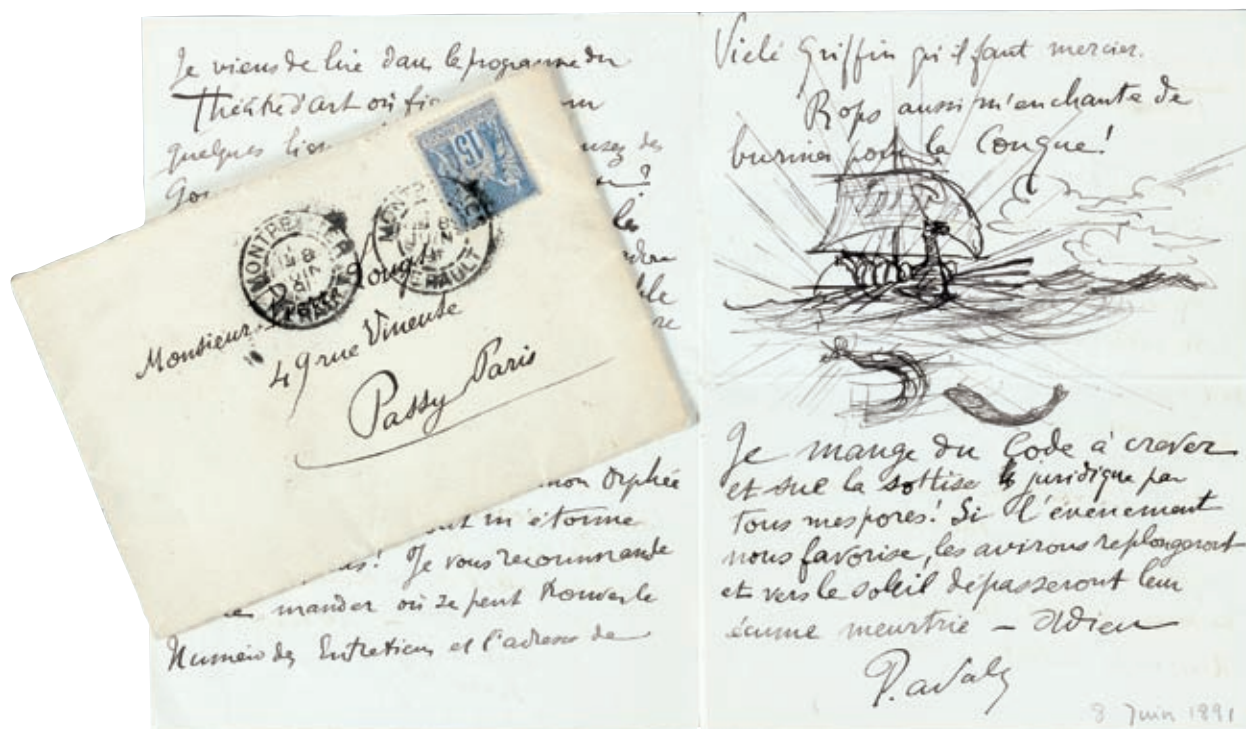 Je viens de lire dans le programme du
Théâtre d'art où
quelques
Go
les
on Orphée
m'étonne
! Je vous recommande
mander où se peut trouver le
Numéro des Entretiens et l'adresse de
15
MONTPELLIER
8
JUIN
91
HERAULT
Monsieur
49 rue Vineuse
Passy Paris
Vielé Griffin qu'il faut mercier.
Rops aussi m'enchante de
buriner pour la Conque!
Je mange du Code à crever
et sue la sottise juridique par
tous mes pores! Si l'évènement
nous favorise, les avirons replongeront
et vers le soleil dépasseront leur
écume meurtrie – Adieu
P.
8 Juin 1891